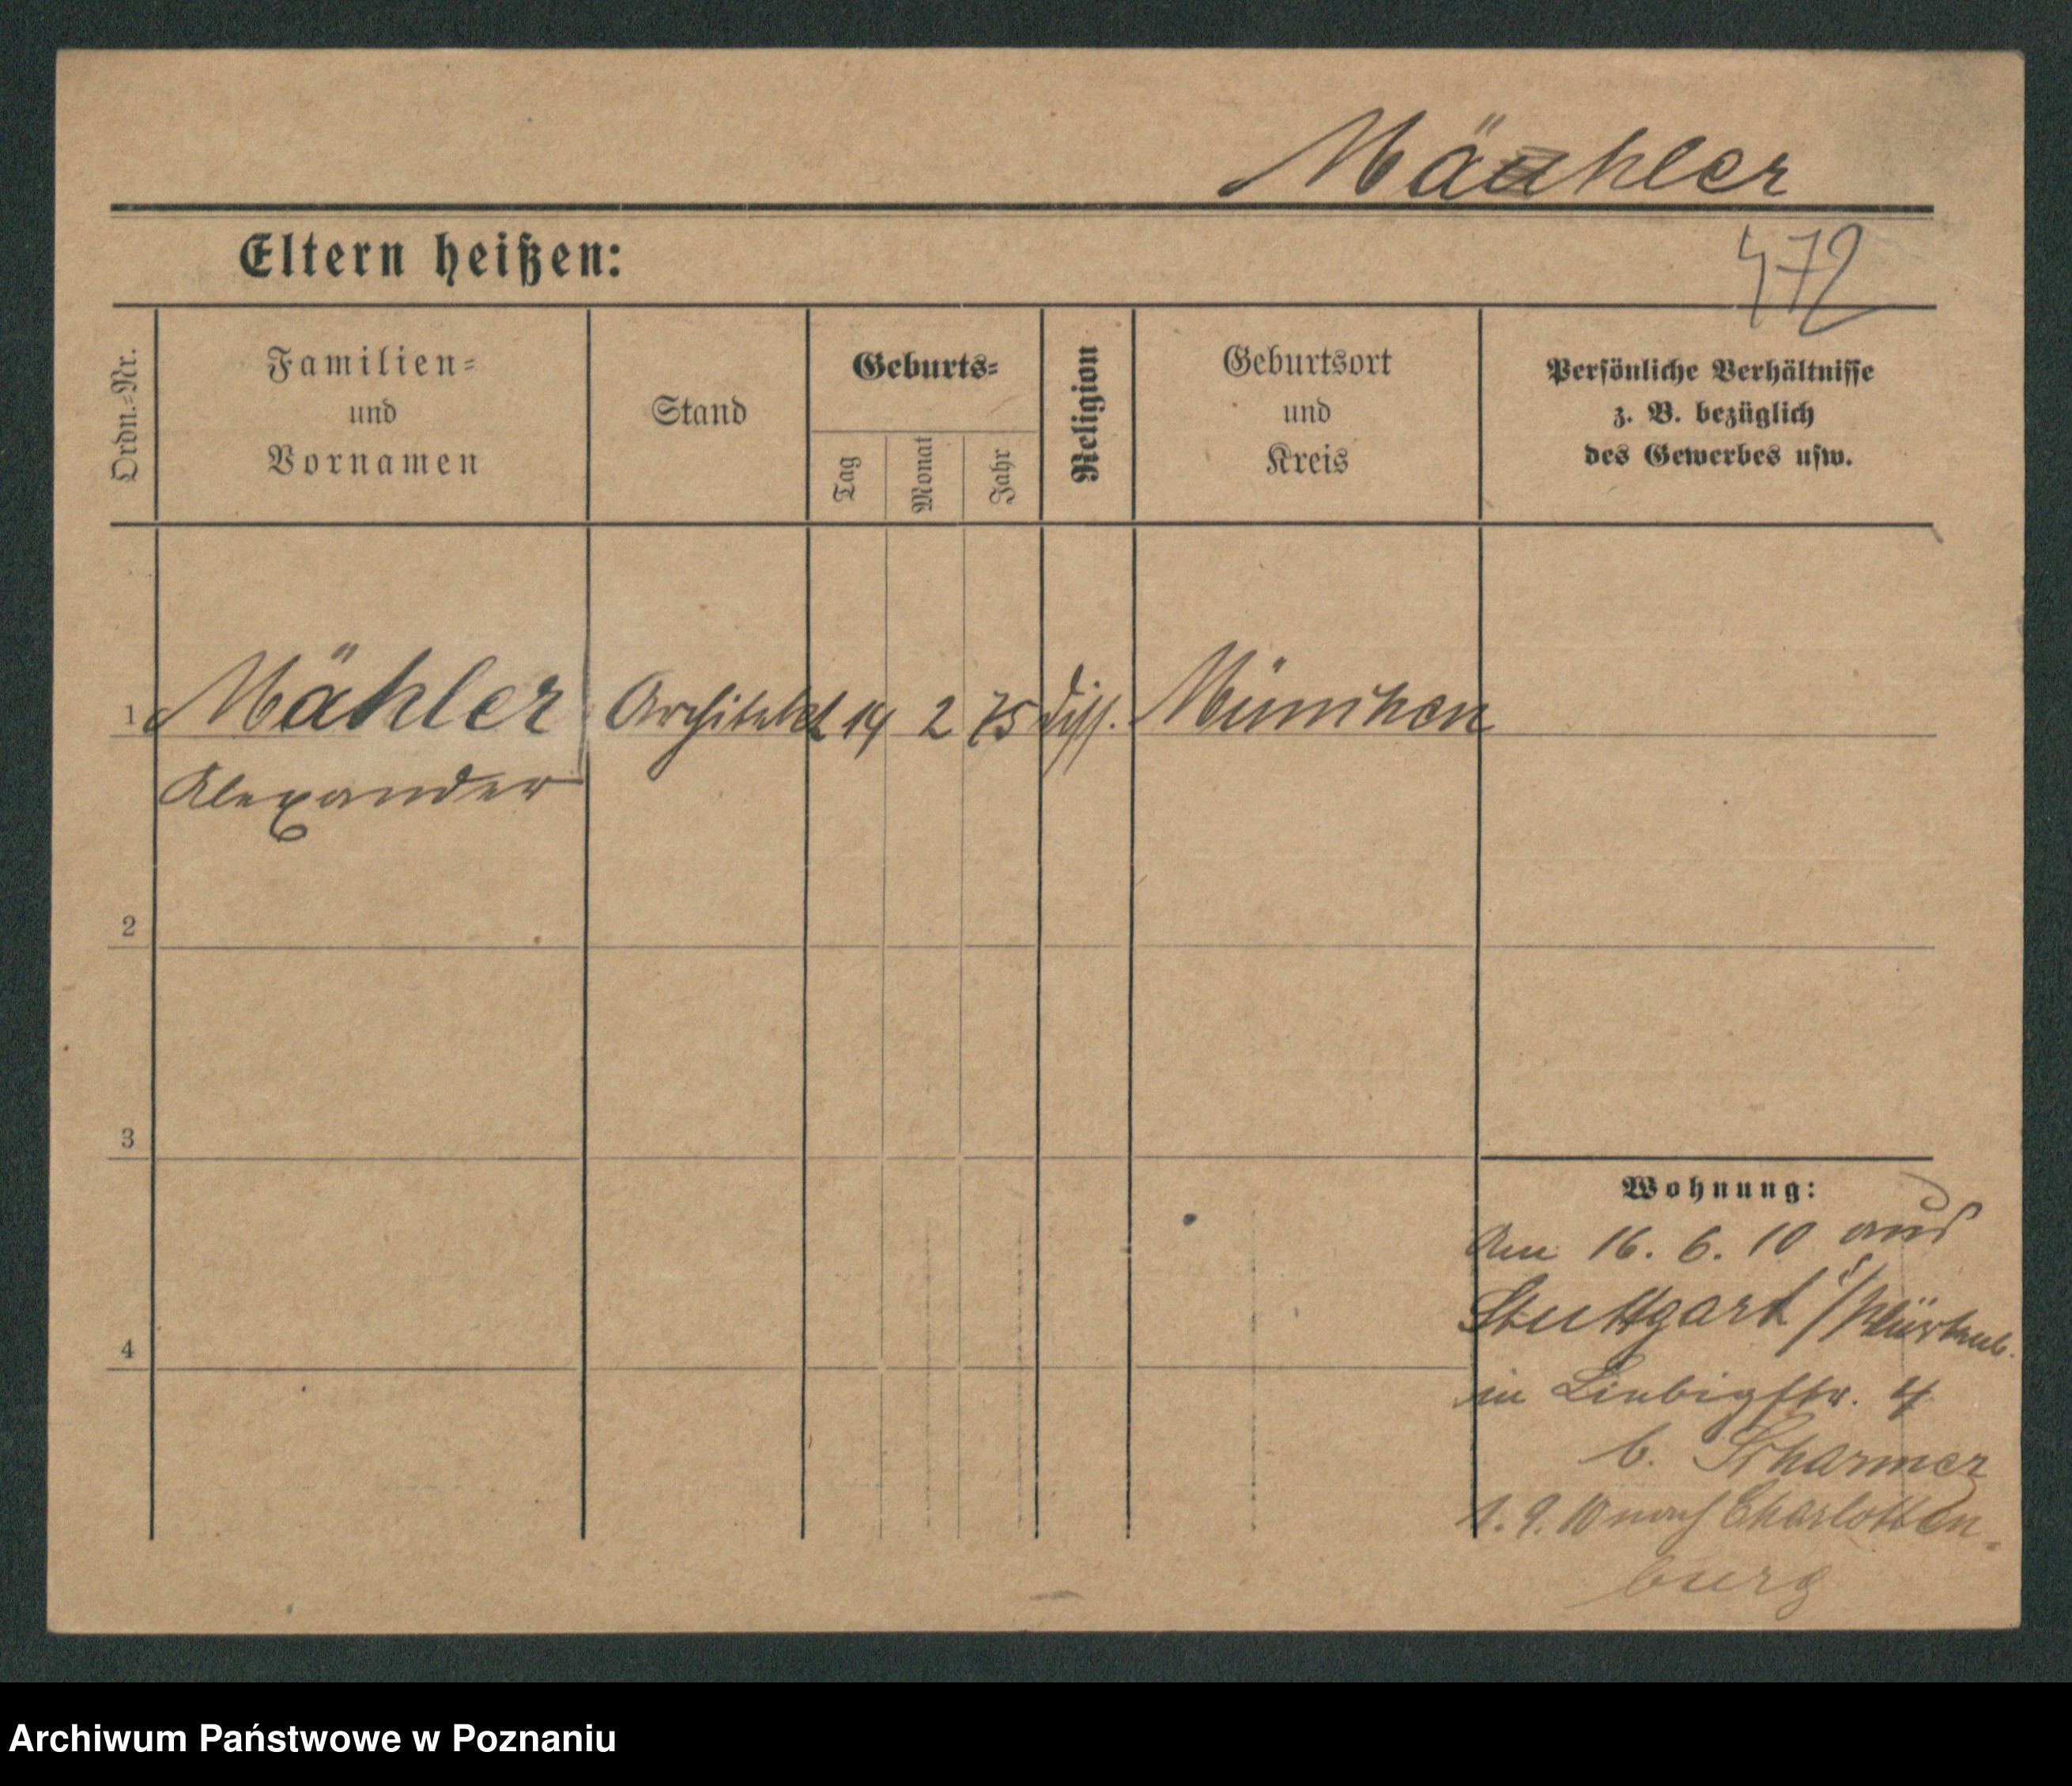 Mähler
Eltern heißen:
472
Ordn.=Nr.
Familien=
und
Vornamen
Stand
Geburts=
Tag
Monat
Jahr
Religion
Geburtsort
und
Kreis
Persönliche Verhältnisse
z. B. bezüglich
des Gewerbes usw.
1 Mähler Architekt 14 2 75 diss. München
Alexander
2
3
4
Wohnung:
Am 16. 6. 10 aus
Stuttgart i/Würtemb.
in Liebigstr. 4
b. Scharmer
1. 9. 10 nach Charlotten-
burg
Archiwum Państwowe w Poznaniu